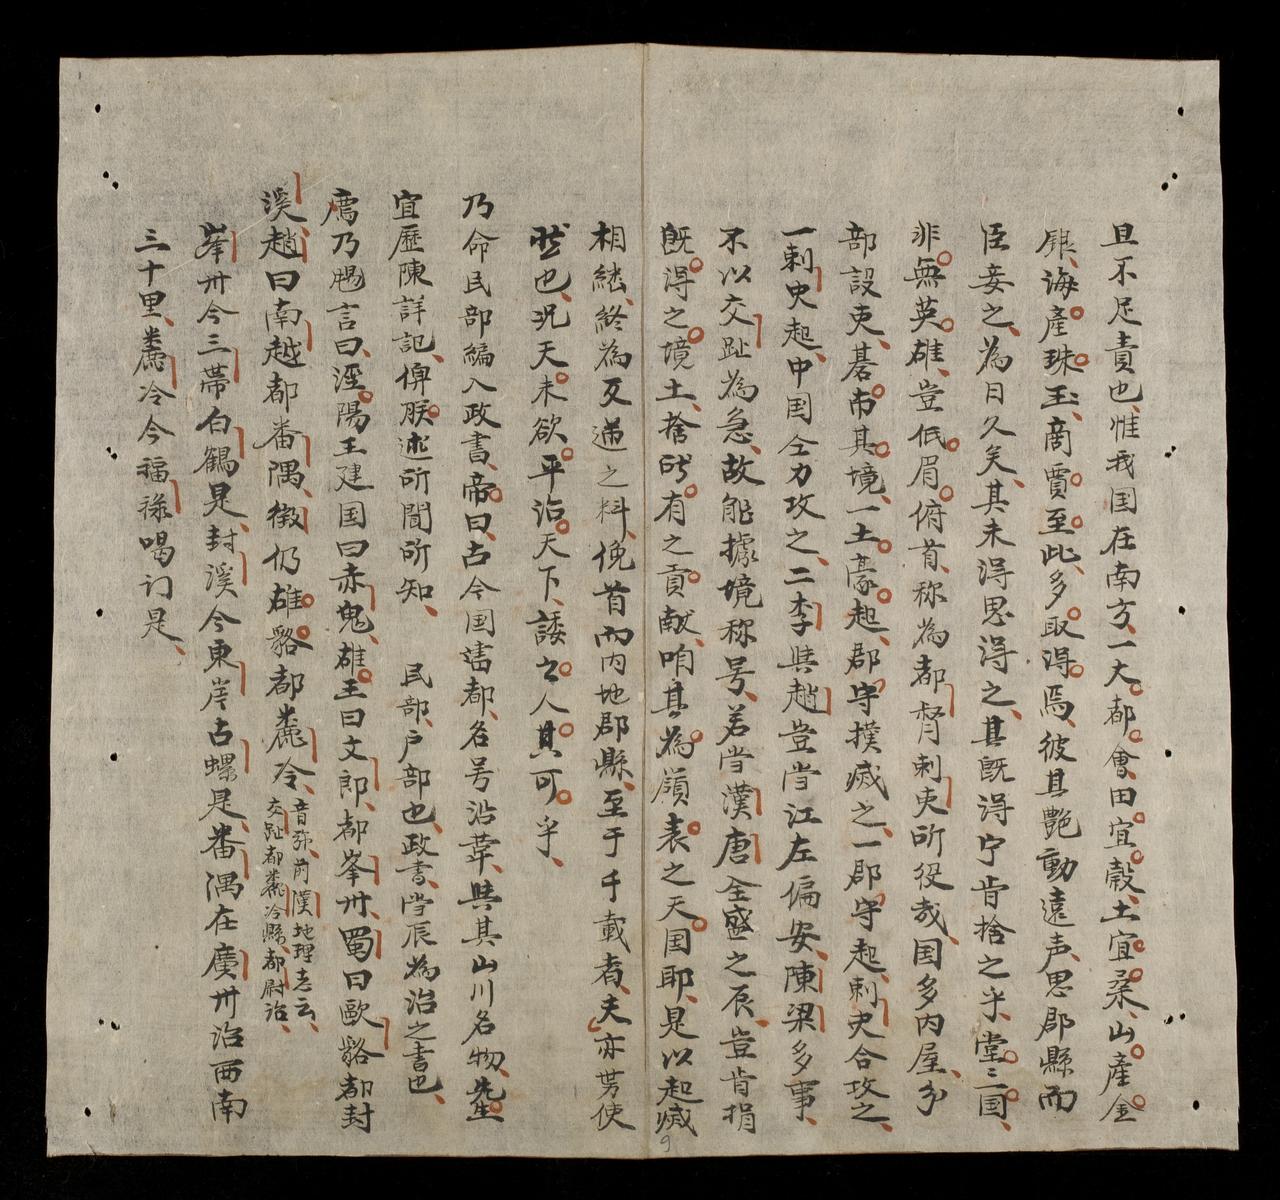 且不足責也惟我国在南方一大都會田宜穀土宜桑山產金
銀海產珠玉商賈至此多取淂焉彼其艷動遠声思郡縣而
臣妾之為日久矣其未淂思淂之其既淂宁肯捨之乎堂〻国
非無英雄豈低眉俯首称為都督刺吏所役哉国多内屋分
部設吏碁布其境一土豪起郡守撲滅之一郡守起刺史合攻之
一刺史起中国仝力攻之二李與趙豈当江左偏安陳梁多事
不以交趾為急故能據境称号若当漢唐全盛之辰豈肯捐
既淂之境土捨所有之貢献咱其為嶺表之天国耶是以起滅
相継終為互逓之料俛首而内地郡縣至于千載者夫亦势使
然也况天未欲平治天下諉之人其可乎
乃命民部編入政書帝曰古今国䛊都名号沿革與其山川名物先生
宜歷陳詳記俾朕述所聞所知 民部户部也政書当辰為治之書也
廌乃賜言曰涇陽王建国曰赤鬼雄王曰文郎都峯州蜀曰歐貉都封
溪趙曰南越都番隅徵仍雄貉都麊冷音弥前漢地理志云交趾都麊冷縣都尉治
峯州今三帶白鶴是封溪今東岸古螺是番隅在廣州治西南
三十里麊冷今福祿喝门是
9